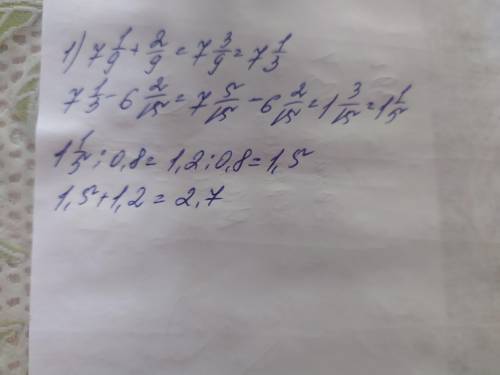 1) 7 1/9 + 2/9 = 7 3/9 = 7 1/3
7 1/3 - 6 2/15 = 7 5/15 - 6 2/15 = 1 3/15 = 1 1/5
1 1/5 : 0,8 = 1,2 : 0,8 = 1,5
1,5 + 1,2 = 2,7